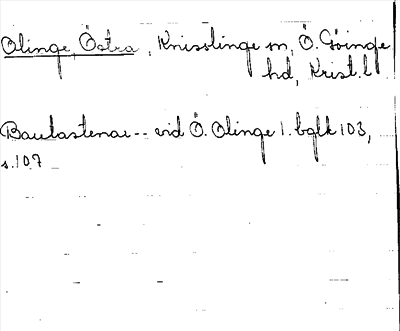 Olinge, Östra, Knisslinge sn, Ö. Göinge
hd, Krist. l.
Bautastenar -- vid Ö. Olinge 1. bglk 103,
s. 107